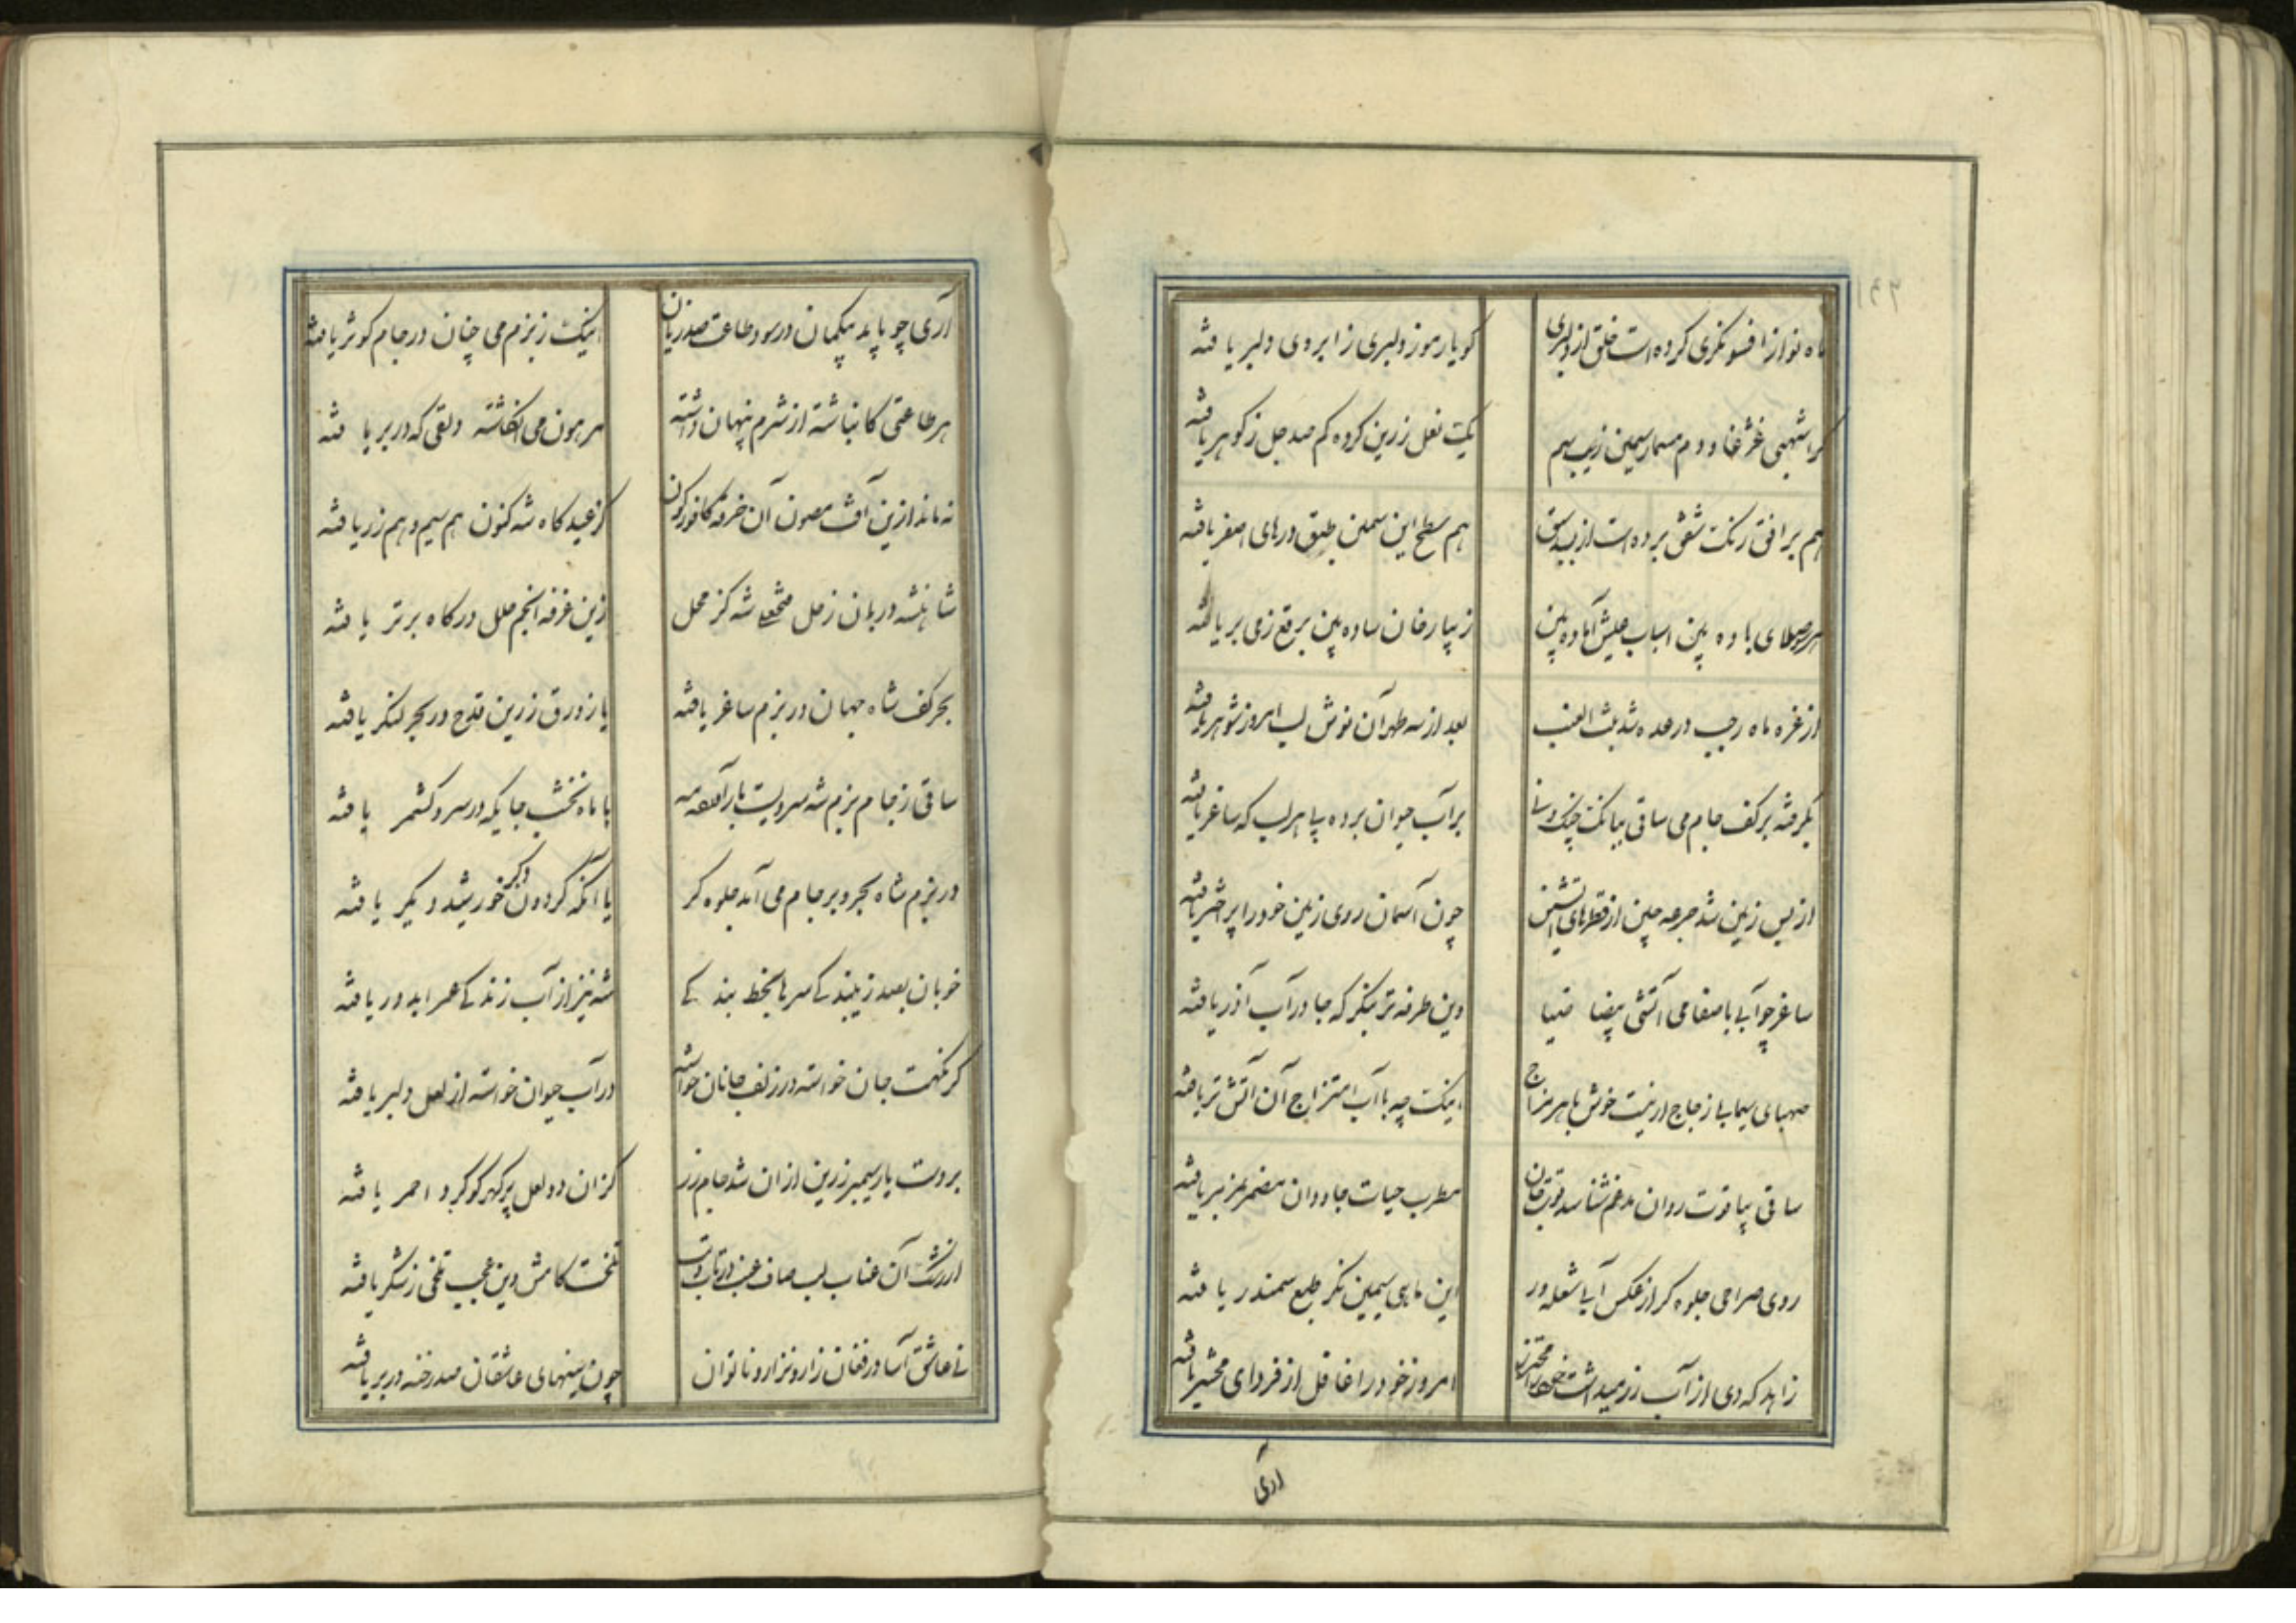 ماه نو از افسونگری کرده است خلق از دل بری
کویا رموز دلبری ز ابروی دلبر یافته
یک نعل زرین کرده کم صد جل ز کوهر یافته
هم بر افق رنک شفق برده است از
هم سطح این سیمین طبق درهای اصفر یافته
هر سو صلای باده بین اسباب عیش آماده بین
زیبا رخان ساده بین برقع ز می بر یافته
از غره ماه رجب در حده شد بنت العنب
بعد از سه طهر آن نوش لب امروز شوهر یافته
بگرفته بر کف جام می ساقی ببانک چنک و نی
بر آب حیوان برده پی هر لب که ساغر یافته
از بس زمین شد جرعه چین از قطرهای آتشین
چون آسمان روی زمین خود را پر اختر یافته
ساغر چو آبی با صفا می آتشی بیضا ضیا
وین طرفه تر بنکر که جا در آب آذر یافته
صهبای سیمابی زجاج ار نیست خوش با هر مزاج
اینک چه با آب امتزاج آن آتش تر یافته
ساقی بیاقوت روان مدغم شناسد قوت جان
مطرب حیات جاودان مضمر بمزمر یافته
روی صراحی جلوه کر از عکس آبی شعله ور
این ماهی سیمین نکر طبع سمندر یافته
زاهد که دی از آب رز میداشت خود را محترز
امروز خود را غافل از فردای محشر یافته
آری
آری چو یابد بیکمان در سود طاعت صد زیان
اینک ز بزم می چنان در جام کوثر یافته
هر طاعتی کانباشته از شرم پنهان داشته
مرهون می انکاشته دلقی که در بر یافته
نه مانده ازین آفت مصون آن خرقه کافورکون
کز عیدکاه شه کنون هم سیم و هم زر یافته
شاهنشه دربان زحل شه کز محل
زین غرفه انجم حلل درکاه برتر یافته
بحر کف شاه جهان در بزم ساغر یافته
یا زورق زرین قدح در بحر لنکر یافته
ساقی ز جام بزم شه سرویست بار آورده مه
یا ماه نخشب جایکه در سرو کشمر یافته
در بزم شاه بحر و بر جام می آمد جلوه کر
یا آنکه کردون دکر خورشید دیکر یافته
خوبان بصد زیبندکی سرها بخط بندکی
شه نیز از آب زندکی عمر ابد در یافته
کر نکهت جان خواسته در زلف جانان خواسته
در آب حیوان خواسته از لعل دلبر یافته
بر دست یار سیمبر زرین از آن شد جام زر
کز آن دو لعل پر کهر کوکرد احمر یافته
از رشک آن عناب لب صاف عنب در تاب و تب
تلخست کامش وین عجب تلخی ز شکر یافته
نی عاشق آسا در فغان زار و نزار و ناتوان
چون سینهای عاشقان صد رخنه در بر یافته